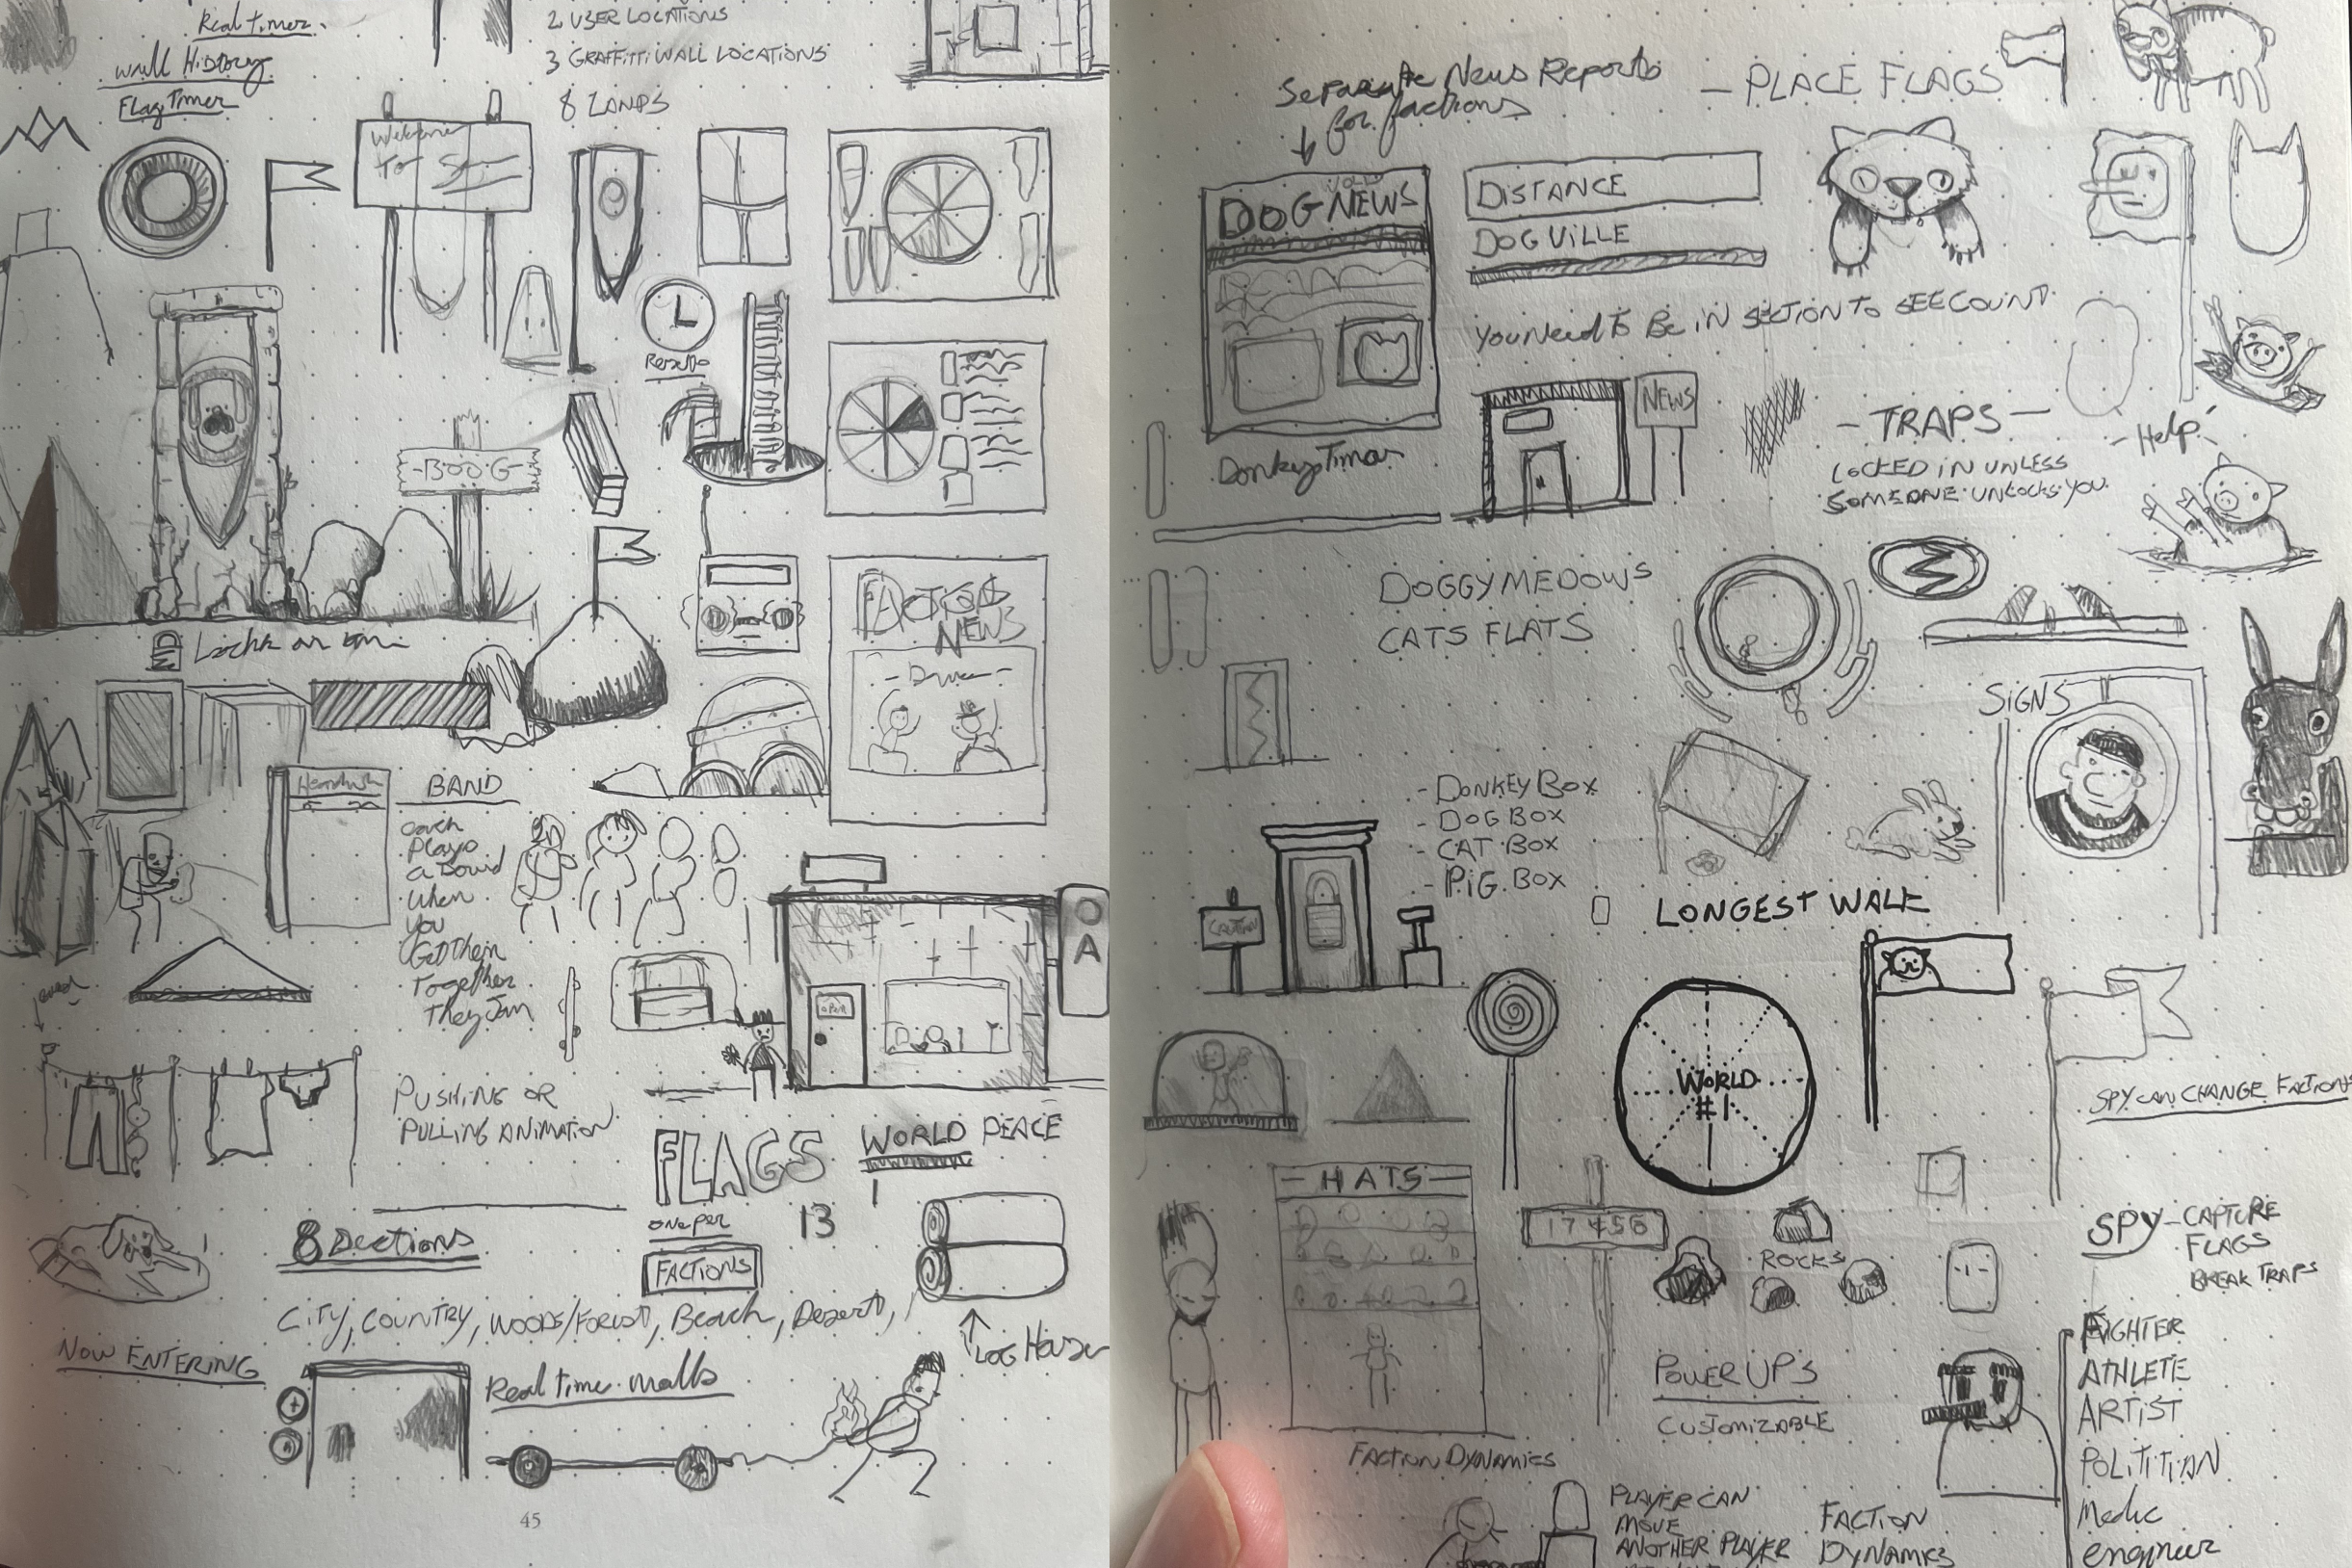 Real timer.
Wall History
Flag Timer
2 USER LOCATIONS
3 GRAFFITTI WALL LOCATIONS
8 LANDS
Welcome
To
L
-BOOG-
FACTION
NEWS
BAND
each
Plays
a Sound
When
you
Get Them
Together
They Jam
OPEN
O
A
PUSHING OR
PULLING ANIMATION
FLAGS
one per
FACTIONS
13
WORLD PEACE
8 Sections
City, COUNTRY, WOODS/FOREST, Beach, Desert,
LOG House
NOW ENTERING
Real time walls
45
Separate News Reports
for factions
- PLACE FLAGS
DOG NEWS
DISTANCE
DOGVILLE
You Need To Be IN SECTION TO SEE COUNT
NEWS
Donkey Times
- TRAPS -
LOCKED IN UNLESS
SOMEONE UNLOCKS YOU
- Help! -
DOGGY MEDOWS
CATS FLATS
SIGNS
- DONKEY BOX
- DOG BOX
- CAT BOX
- PIG BOX
CAUTION
LONGEST WALK
WORLD
#1
SPY CAN CHANGE FACTIONS
- HATS -
17456
ROCKS
SPY - CAPTURE
FLAGS
BREAK TRAPS
POWER UPS
CUSTOMIZABLE
FIGHTER
ATHLETE
ARTIST
POLITITIAN
Medic
engineer
FACTION DYNAMICS
PLAYER CAN
MOVE
ANOTHER PLAYER
FACTION
DYNAMICS